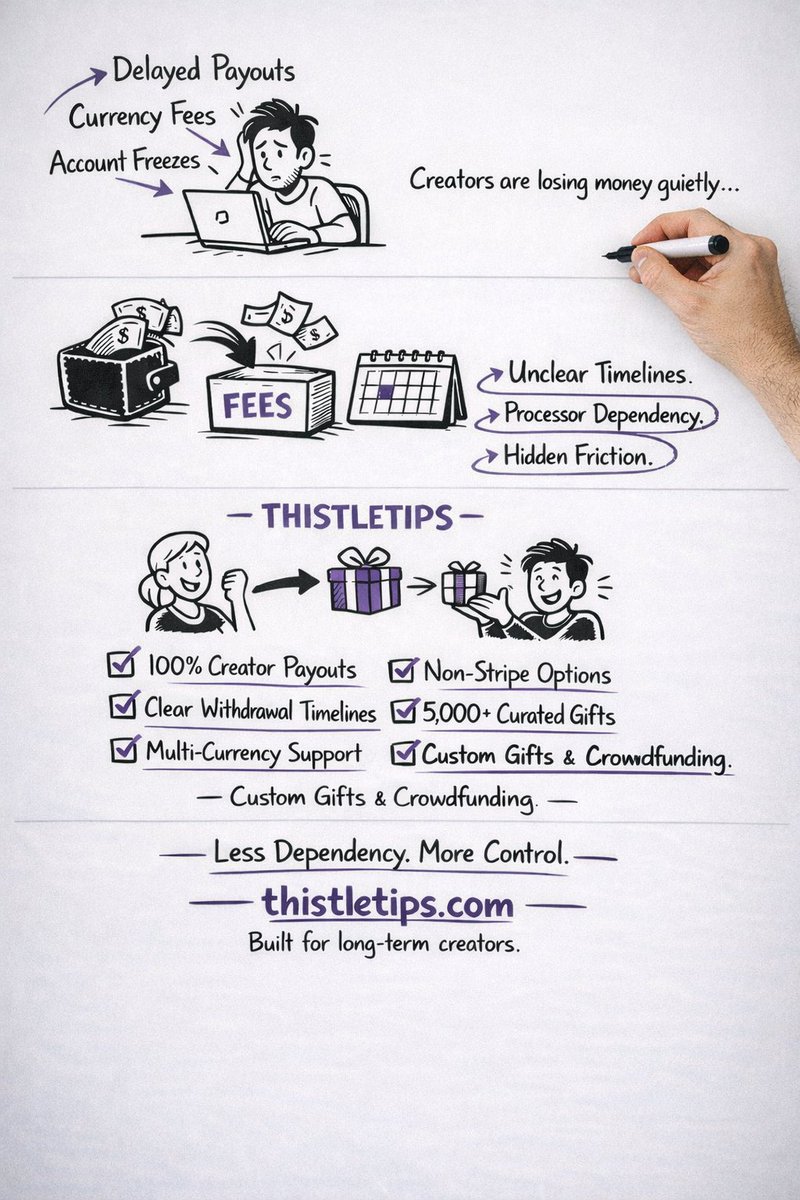 Delayed Payouts
Currency Fees
Account Freezes
Creators are losing money quietly...
FEES
Unclear Timelines.
Processor Dependency.
Hidden Friction.
— THISTLETIPS —
100% Creator Payouts
Non-Stripe Options
Clear Withdrawal Timelines
5,000+ Curated Gifts
Multi-Currency Support
Custom Gifts & Crowdfunding.
— Custom Gifts & Crowdfunding. —
Less Dependency. More Control.
thistletips.com
Built for long-term creators.